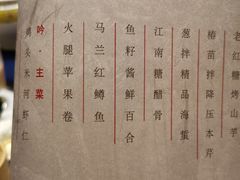 老红糖烤山芋
椿苗拌降压本芹
葱拌精品海蜇
江南糖醋骨
鱼籽酱鲜百合
马兰红鳟鱼
火腿苹果卷
吟·主菜
头米河虾仁